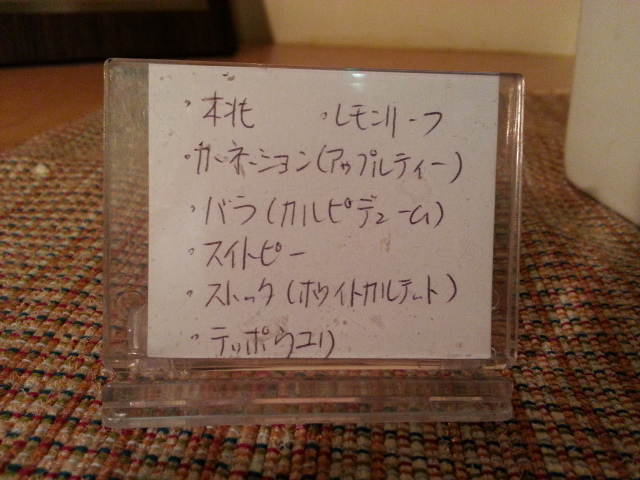 ・レモンリーフ
・カーネーション(アップルティー)
・バラ(カルピデューム)
・スイトピー
・ストック(ホワイトカルテット)
・テッポウユリ